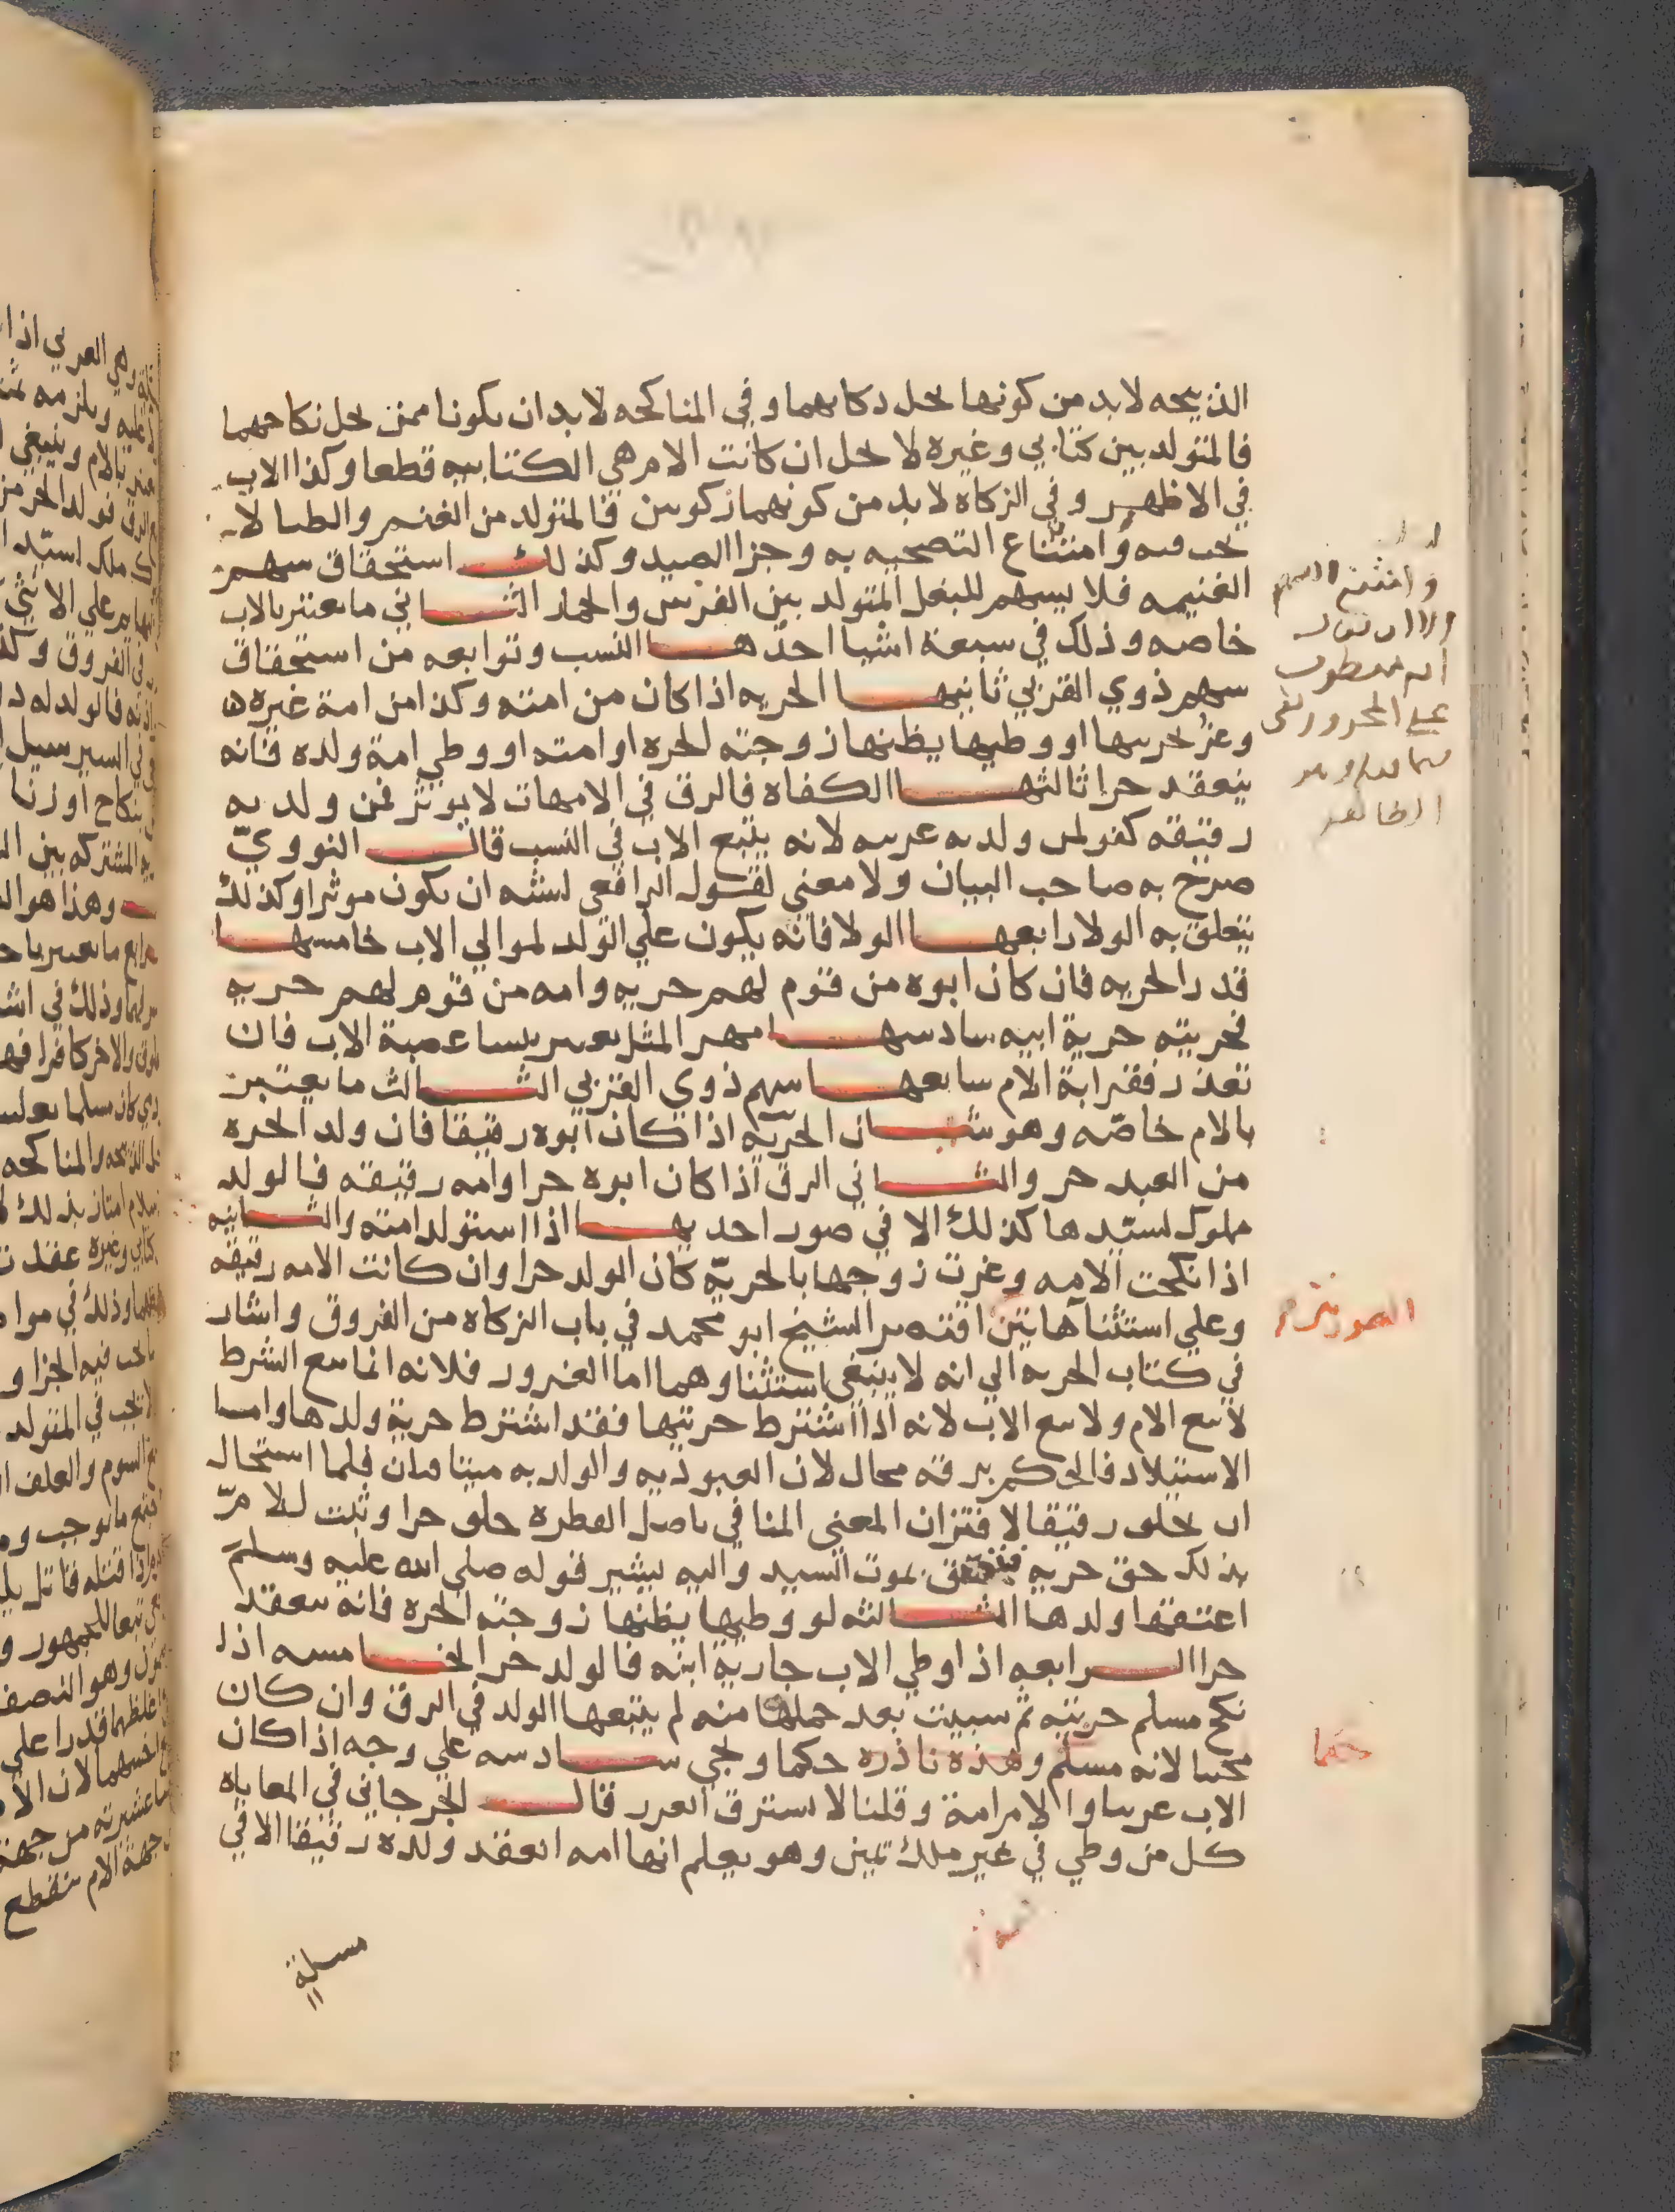 الذبيحه لابد من كونها يحل ذكاتهما وفي المناكحه لابد ان يكونا ممن يحل نكاحهما
فالمتولد بين كتابي وغيره لا يحل ان كانت الام هي الكتابيه قطعا وكذا الاب
في الاظهر وفي الزكاه لابد من كونهما زكويين فالمتولد من الغنم والظبا لا
تجب فيه وامتناع التضحيه به وجزا الصيد وكذلك استحقاق سهم
الغنيمه فلا يسهم للبغل المتولد بين الفرس والحمار الثاني ما يعتبر بالاب
خاصه وذلك في سبعة اشيا احدها النسب وتوابعه من استحقاق
سهم ذوي القربي ثانيها الحريه اذا كان من امته وكذا من امة غيره
وغر بحريتها او وطيها يظنها زوجته الحره او امته او وطي امة ولده فانه
ينعقد حرا ثالثها الكفاه فالرق في الامهات لا يوثر فمن ولد به
رقيقه كفو لمن ولدته عربيه لانه يتبع الاب في النسب قال النووي
صرح به صاحب البيان ولا معني لقول الرافعي يشبه ان يكون موثرا وكذلك
يتعلق به الولا رابعها الولا فانه يكون علي الولد لموالي الاب خامسها
قدر الجزيه فان كان ابوه من قوم لهم جزيه وامه من قوم لهم جزيه
فجزيته جزية ابيه سادسها مهر المثل يعتبر بنسا عصبة الاب فان
تعذر فقرابة الام سابعها سهم ذوي القربي الثالث ما يعتبر
بالام خاصّه وهو شيان الحريّه اذا كان ابوه رقيقا فان ولد الحره
من العبد حر والثاني الرق اذا كان ابوه حرا وامه رقيقه فالولد
مملوك لسيّدها كذلك الا في صور احديها اذا استولد امته والثانيه
اذا نكحت الامه وغرت زوجها بالحريّه كان الولد حرا وان كانت الامه رقيقه
وعلي استثنا هاتين اقتصر الشيخ ابو محمد في باب الزكاه من الفروق واشار
في كتاب الجزيه الي انه لا ينبغي استثناوهما اما الغرور فلانه انما يتبع الشرط
لا يتبع الام ولا يتبع الاب لانه اذا اشترط حريتها فقد اشترط حرية ولدها واما
الاستيلاد فالحكم برقه محال لان العبوديه والولديه متنافيان فلما استحال
ان يخلق رقيقا لاقتران المعني المنافي باصل الفطره خلق حرا وثبت للام
بذلك حق حريه بموت السيد واليه يشير قوله صلي الله عليه وسلم
اعتقها ولدها الثالثه لو وطيها يظنها زوجته الحره فانه ينعقد
حرا الرابعه اذا وطي الاب جارية ابنه فالولد حر الخامسه اذا
نكح مسلم حربيه ثم سبيت بعد حملها منه لم يتبعها الولد في الرق وان كان
مجتنا لانه مسلم وهذه نادره حكما ويجي سادسه علي وجه اذا كان
الاب عربيا والام امة وقلنا لا يسترق العرب قال الجرجاني في المعاياه
كل من وطي في غير ملك يمين وهو يعلم انها امه انعقد ولده رقيقا الا في
مسلة
وامتنع
الا ان يقال
انه معطوف
علي المجرور
الصورتين
حكما